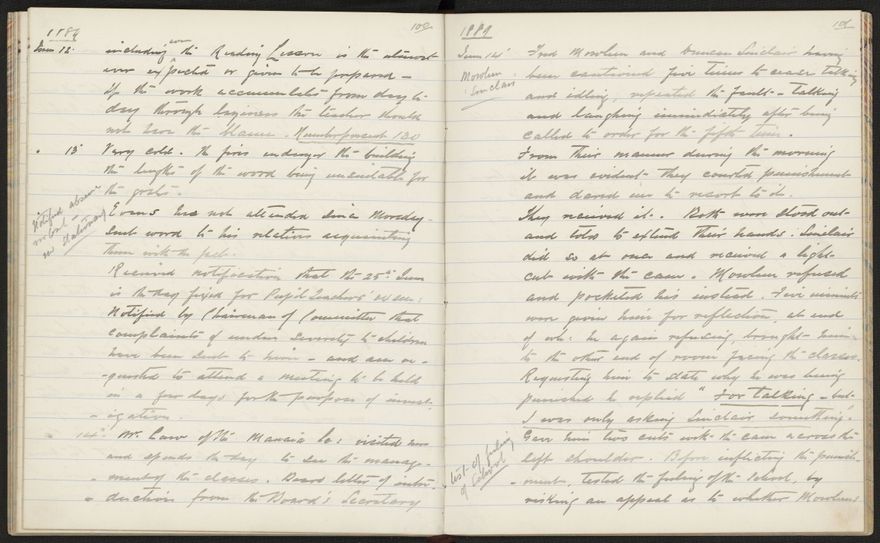 1889
100
June 12. including even the Reading Lesson is the utmost
ever expected or given to be prepared —
If the work accumulates from day to
day through laziness the teacher should
not bear the blame. Number present 130
" 13 Very cold. The fires endanger the building
the lengths of the wood being unsuitable for
the grate.
Evans has not attended since Monday.
Sent word to his relatives acquainting
them with the fact.
Received notification that the 25th June
is the day fixed for Pupil Teachers' exam:
Notified by Chairman of Committee that
complaints of undue severity to children
have been sent to him — and am re-
-quested to attend a meeting to be held
in a few days for the purpose of invest-
-igation.
" 14th Mr. Law of the Manaia Sc: visited me
and spends the day to see the manage-
-ment of the classes. Board letter of intro-
-duction from the Board's Secretary
1889
101
June 14 Fred Mowlem and Duncan Sinclair having
Mowlem
Sinclair
been cautioned four times to cease talking
and idling, repeated the fault — talking
and laughing immediately after being
called to order for the fifth time.
From their manner during the morning
it was evident they courted punishment
and dared me to resort to it.
They received it. Both were stood out
and told to extend their hands. Sinclair
did so at once and received a light
cut with the cane. Mowlem refused
and pocketed his instead. Five minutes
were given him for reflection, at end
of wh: he again refusing, brought him
to the other end of room facing the classes.
Requesting him to state why he was being
punished he replied "For talking — but
I was only asking Sinclair something".
Gave him two cuts with the cane across the
left shoulder. Before inflicting the punish-
test of feeling
of School
- ment, tested the feeling of the School, by
risking an appeal as to whether Mowlem's